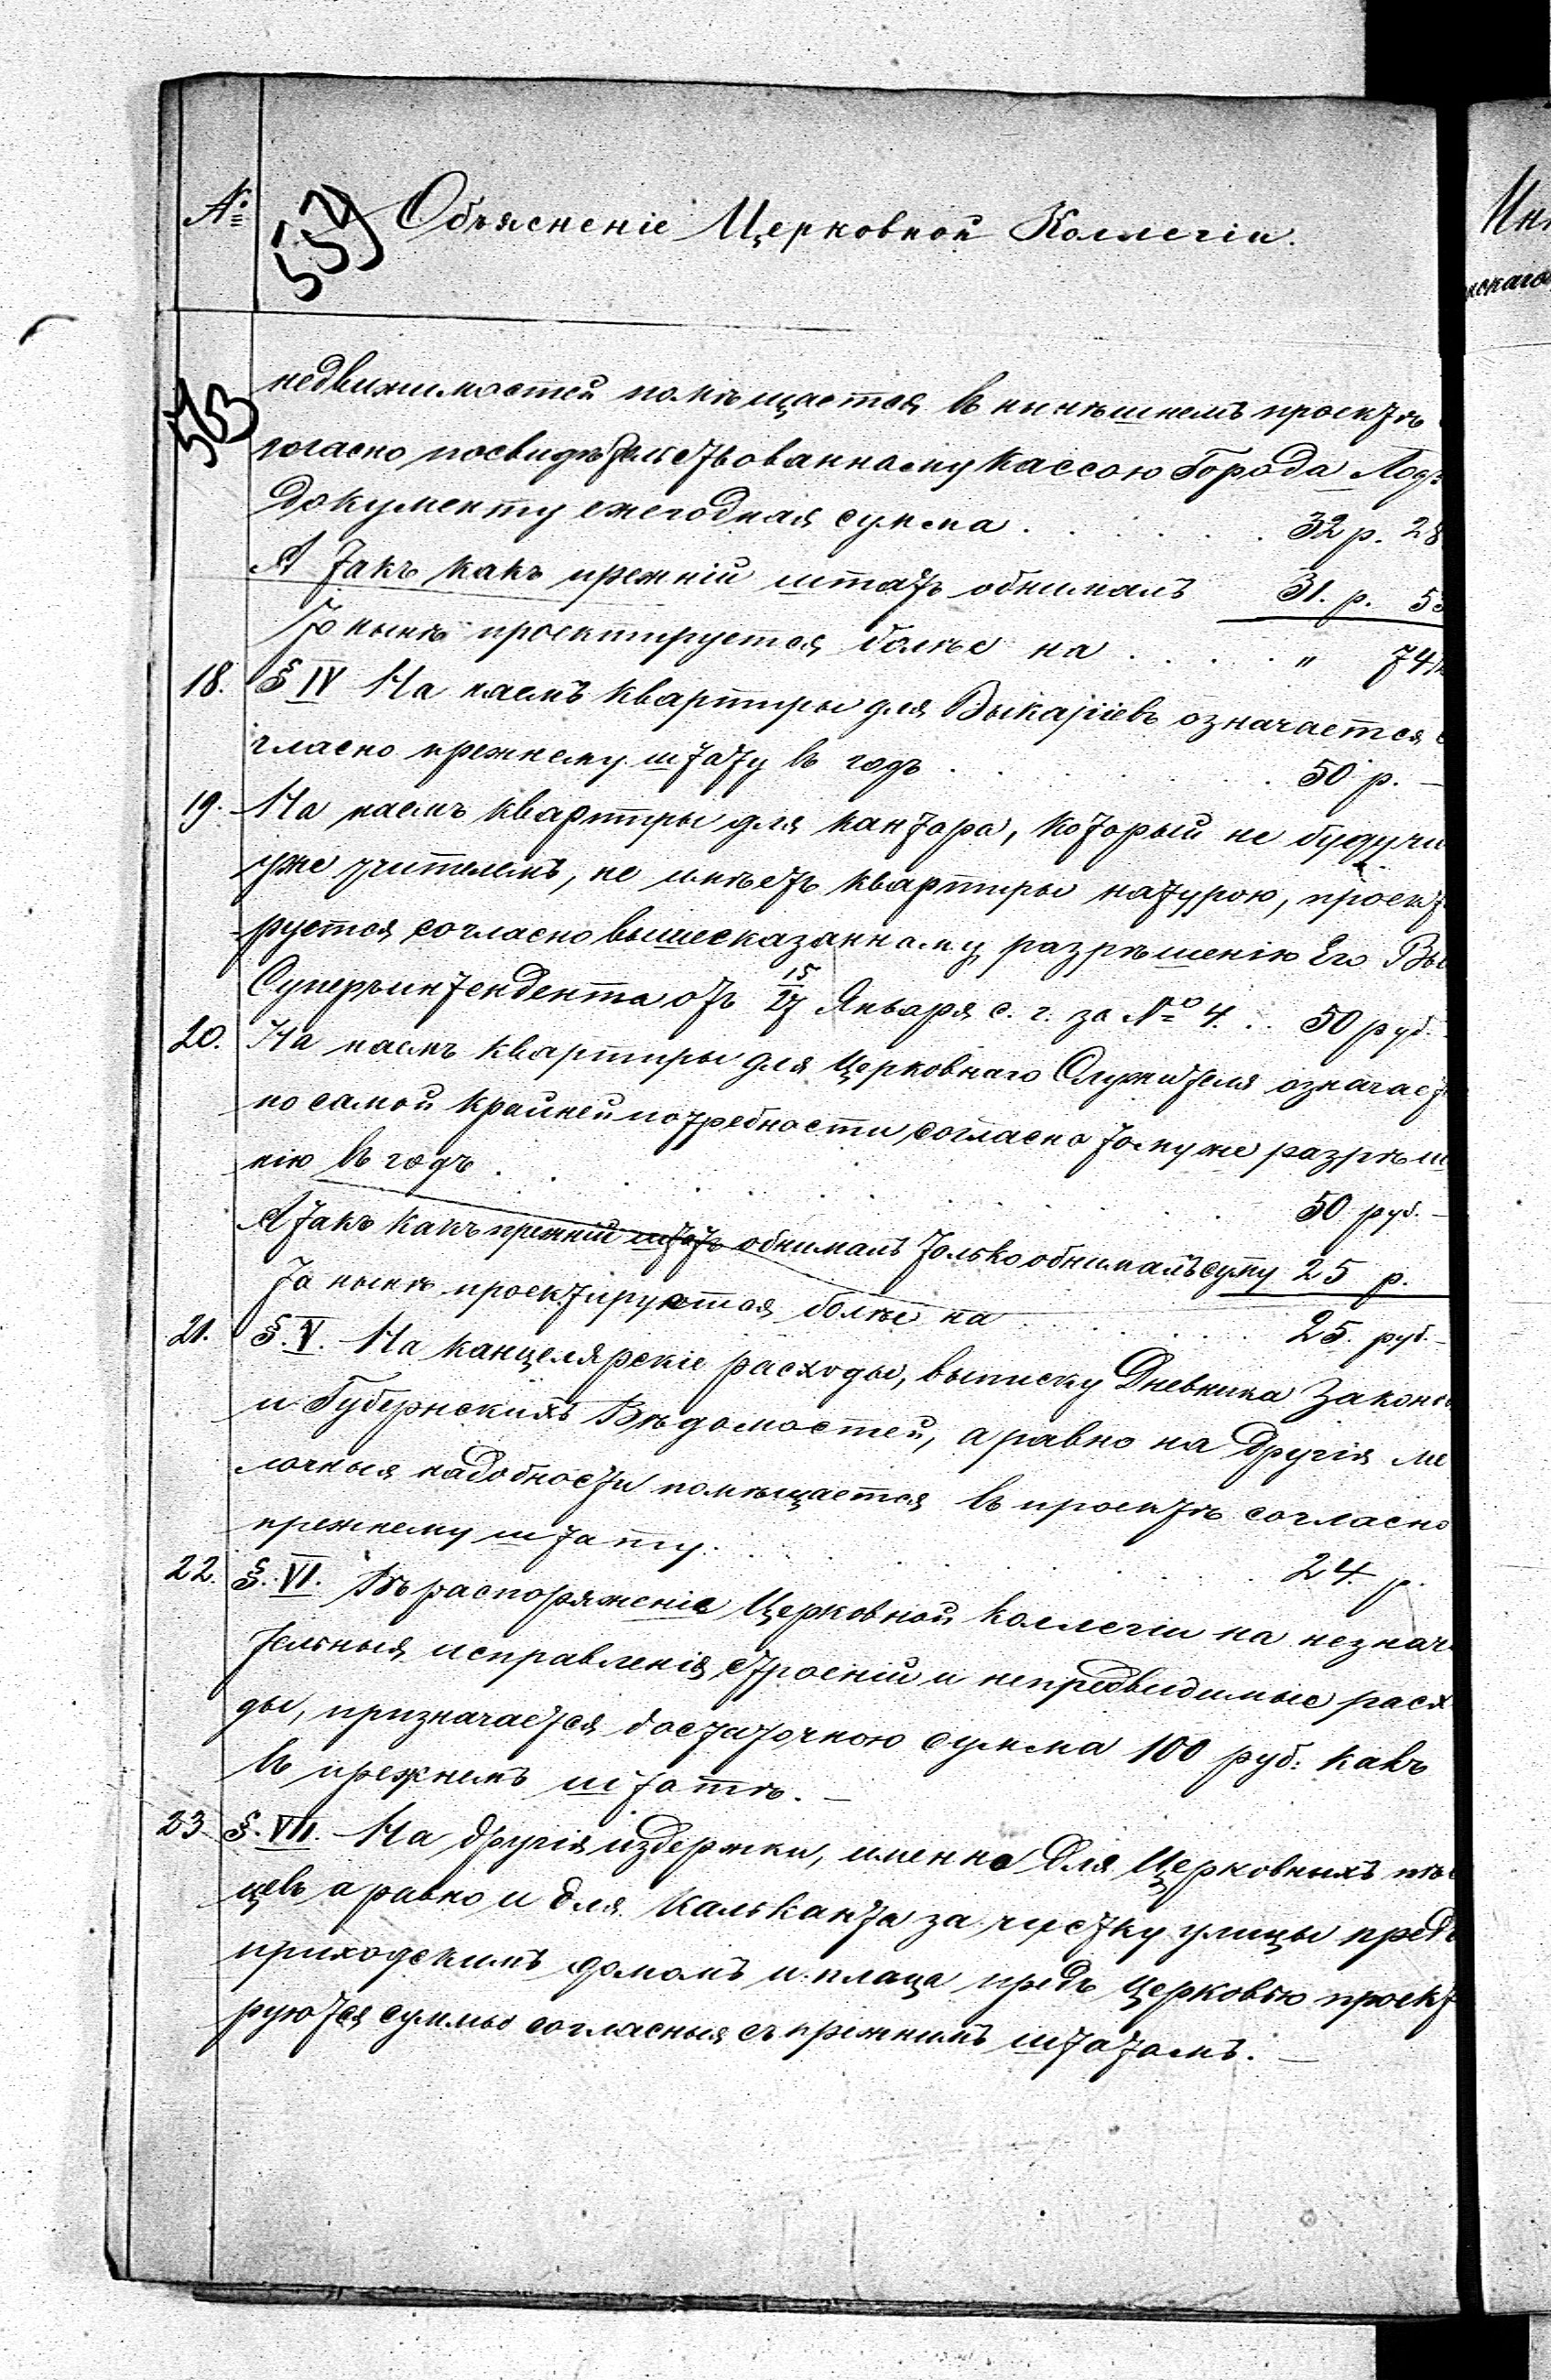 №
Объясненіе Церковной Коллегіи.
недвижимостей помѣщается въ нынѣшнемъ проектѣ
согласно посвидѣтельствованному Кассою Города
документу ежегодная сумма . . . . . . 32 р. 28
А такъ какъ прежній штатъ обнималъ 31. р. 53
То нынѣ проектируется болѣе на . . . . „ 74
18. § IV На наемъ квартиры для Викаріевъ означается
гласно прежнему штату въ годъ . . . . . . 50 р. —
19. На наемъ квартиры для кантора, который не будучи
уже учителемъ, не имѣетъ квартиры натурою, проект
руется согласно вышесказанному разрѣшенію Его
Суперъинтендента отъ 15/27 Января с. г. за № 4. . . 50 руб. —
20. На наемъ квартиры для Церковнаго Служителя означает
по самой крайней потребности согласно томуже разрѣш
нію въ годъ . . . . . . . . . 50 руб. —
А такъ какъ прежній штатъ обнималъ только обнималъ сумму 25 р.
то нынѣ проектируется болѣе на . . . . . . 25. руб. —
21. §. V. На канцелярскіе расходы, выписку Дневника Законовъ
и Губернскихъ Вѣдомостей, а равно на другія ме
лочныя надобности помѣщается въ проектѣ согласно
прежнему штату. . . . . . . . . 24. р.
22. §. VI. Въ распоряженіе Церковной Коллегіи на незначи
тельныя исправленія строеній и непредвидимые расхо
ды, признается достаточною сумма 100 руб: какъ
въ прежнемъ штатѣ. —
23 §. VII. На другія издержки, именно для Церковныхъ пѣв
цевъ а равно и для Кальканта за чистку улицы предъ
приходскимъ домомъ и плаца предъ Церковью проект
руются суммы согласныя съ прежнимъ штатомъ. —